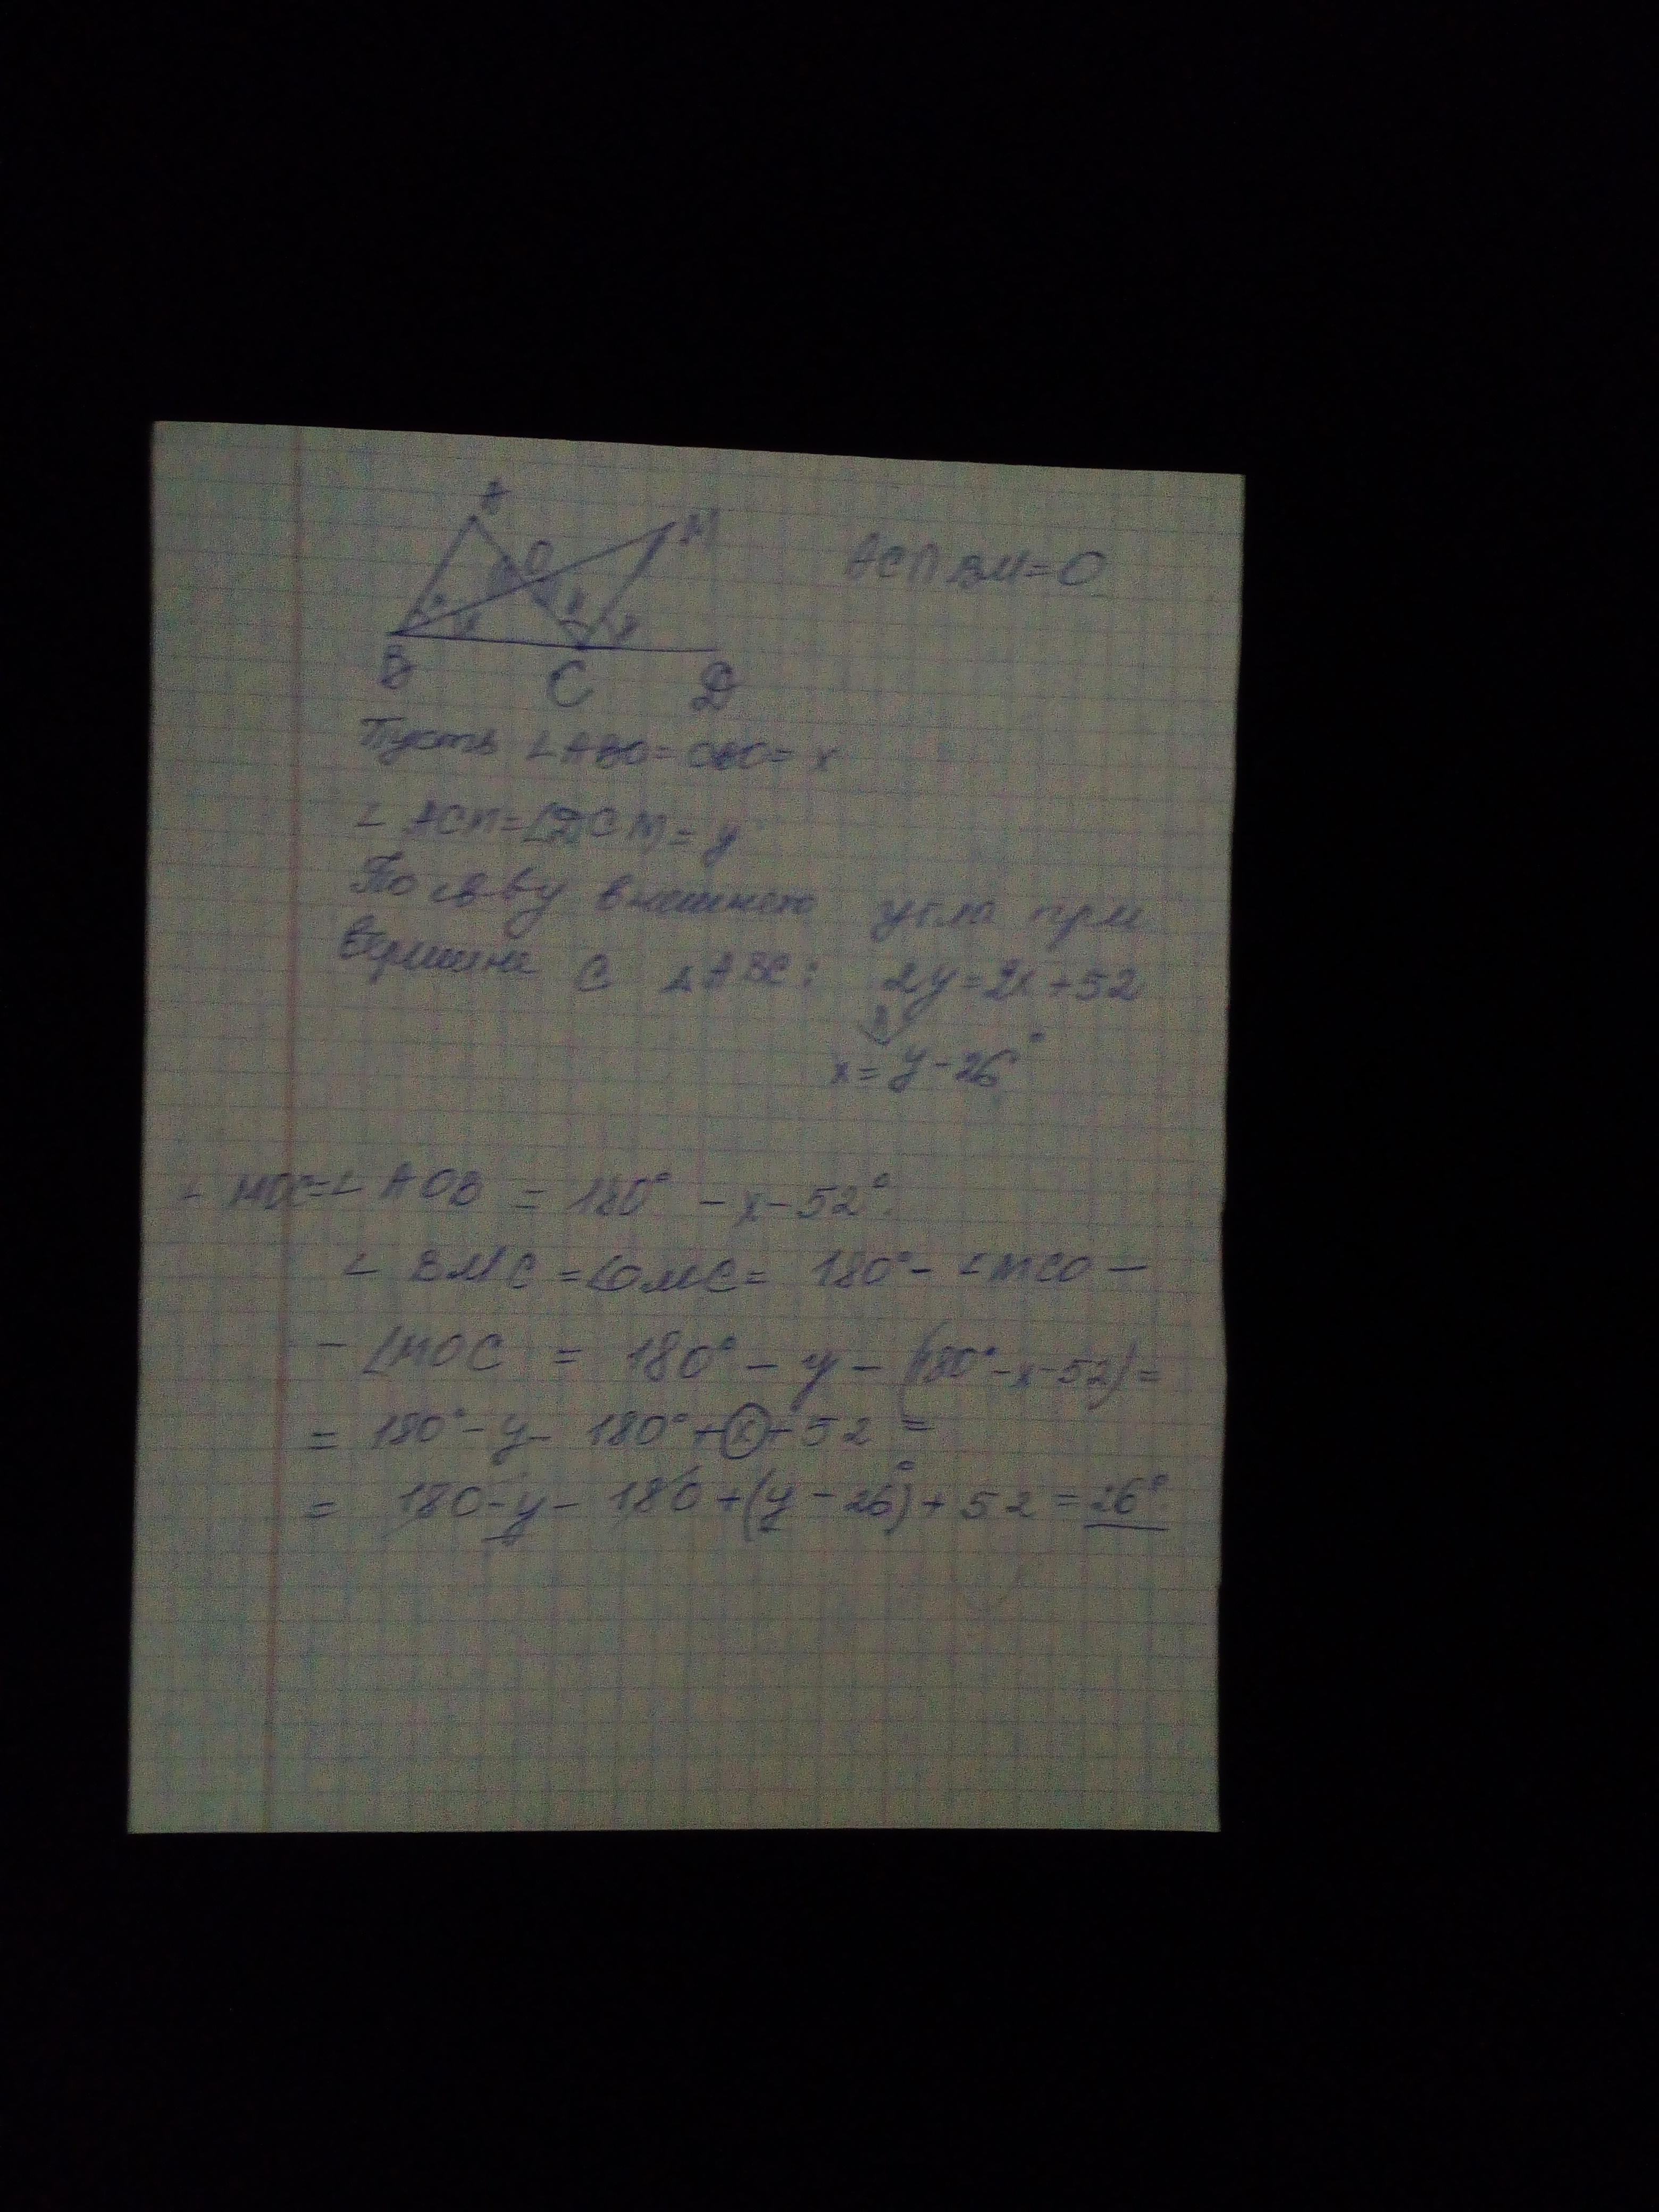 A
M
O
AC∩BM=O
x
x
y
y
B
C
D
Пусть ∠ABO=OBC=x
∠ACM=∠DCM=y
По св-ву внешнего угла при
вершине C △ABC: 2y=2x+52
x=y-26°
∠MOC=∠AOB = 180° -x-52°.
∠BMC=∠OMC= 180°-∠MCO-
-∠MOC = 180°-y-(180°-x-52)=
= 180°-y- 180°+x+52 =
= 180-y- 180+(y-26°)+52 =26°.